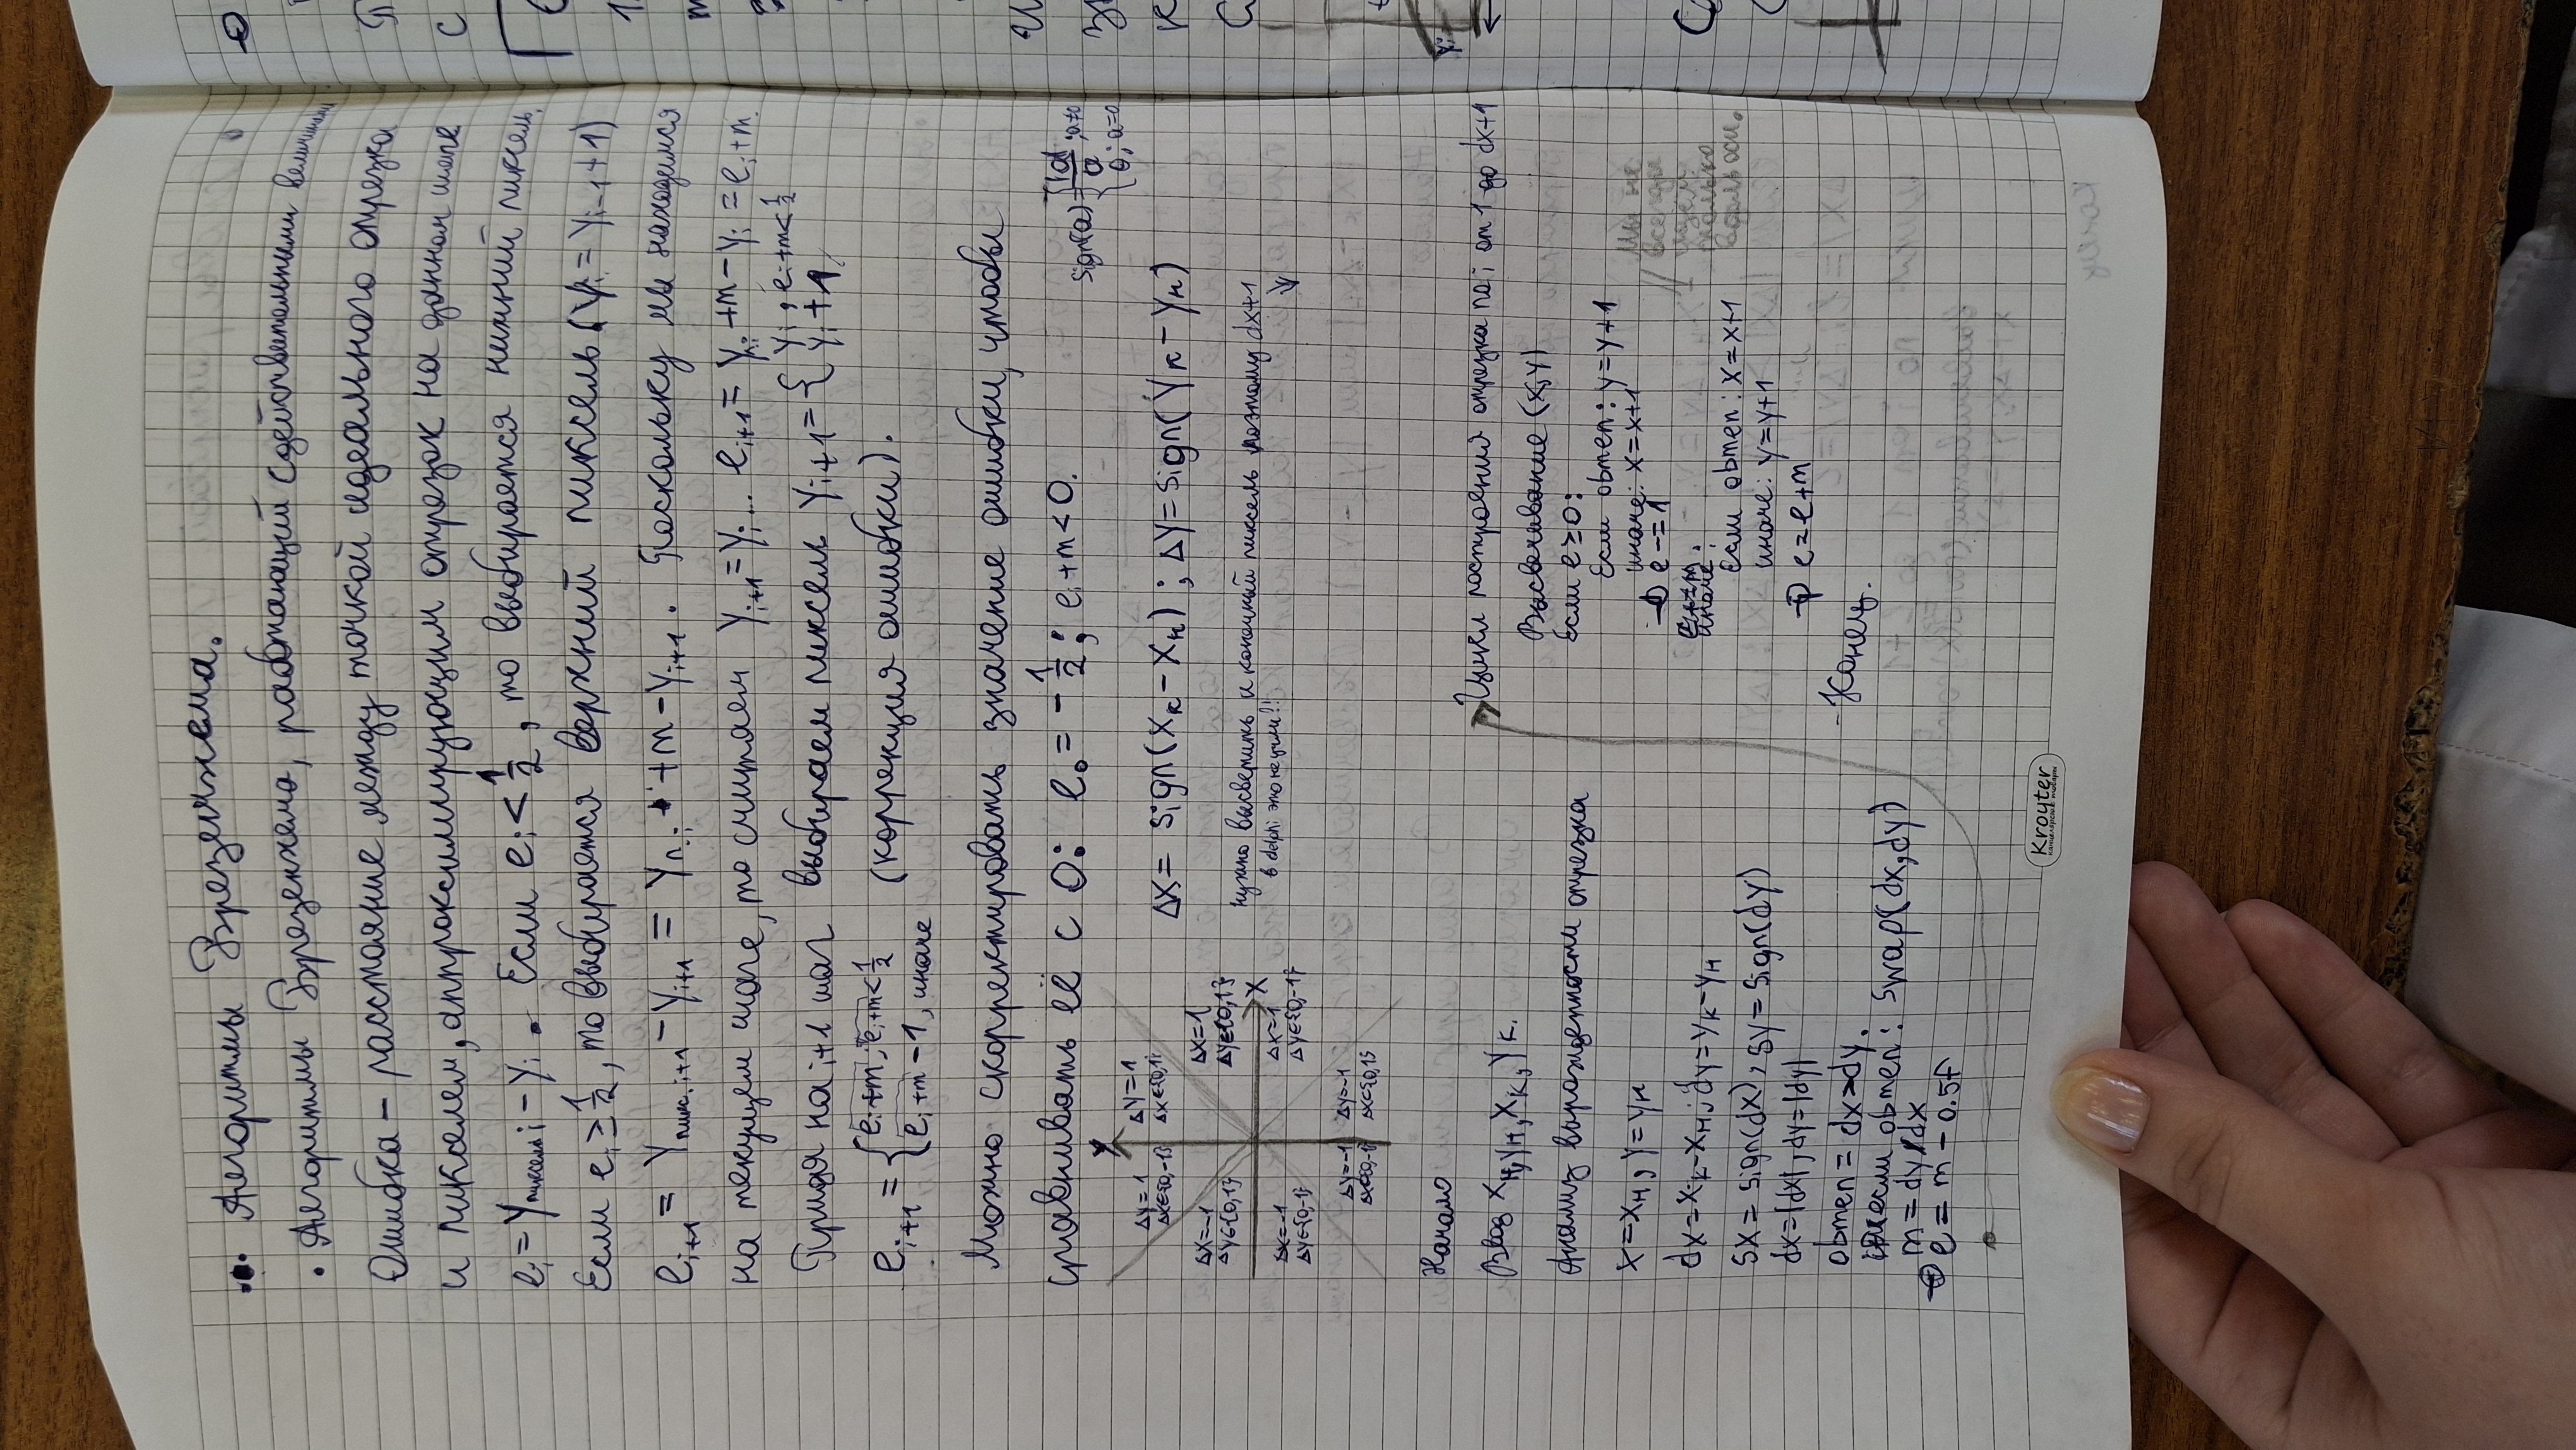 Алгоритмы Брезенхема.
• Алгоритмы Брезенхема, работающий с действительными величинами
Ошибка – расстояние между точкой идеального отрезка
и пикселем, аппроксимирующим отрезок на данном шаге
eᵢ = yпиксель i – yᵢ. Если eᵢ < 1/2, то выбирается нижний пиксель.
Если eᵢ ≥ 1/2, то выбирается верхний пиксель (yᵢ = yᵢ₋₁ + 1)
eᵢ₊₁ = yпикс. i+1 – yᵢ₊₁ = yп. i + m – yᵢ₊₁. Поскольку мы находимся
на текущем шаге, то считаем yᵢ₊₁ = yᵢ... eᵢ₊₁ = yп. i + m – yᵢ = eᵢ + m.
Придя на i+1 шаг выбираем пиксель yᵢ₊₁ = { yᵢ, eᵢ+m < 1/2
yᵢ + 1
eᵢ₊₁ = { eᵢ+m; eᵢ+m < 1/2
eᵢ+m – 1, иначе (коррекция ошибки).
Можно скорректировать значение ошибки, чтобы
сравнивать её с 0: e₀ = – 1/2; eᵢ + m < 0.
sign(a) = { |a|/a; a≠0
0; a=0
Y
Δy=1 Δy=1
Δx∈{0,-1} Δx∈{0,1}
Δx=-1 Δx=1
Δy∈{0,1} Δy∈{0,1}
X
Δx=-1 Δx=1
Δy∈{0,-1} Δy∈{0,-1}
Δy=-1 Δy=-1
Δx∈{0,-1} Δx∈{0,1}
Δx = sign(xк – xн); Δy = sign(yк – yн)
нужно высветить и конечный пиксель поэтому dx+1
в delphi это не цикл?!
Начало
Ввод xн, yн, xк, yк.
Анализ вырожденности отрезка
x = xн, y = yн
dx = xк – xн; dy = yк – yн
sx = sign(dx), sy = sign(dy)
dx = |dx|, dy = |dy|
obmen = dx > dy.
если obmen: swap(dx, dy)
m = dy/dx
e = m – 0.5f
Цикл построения отрезка по i от 1 до dx+1
Высвечивание (x, y)
Если e ≥ 0:
Если obmen: y = y+1
иначе: x = x+1
e -= 1
иначе:
Если obmen: x = x+1
иначе: y = y+1
e = e+m
Конец.
// Мы не
всегда
идём
только
вдоль оси.
Kroyter
канцелярские товары
Конец